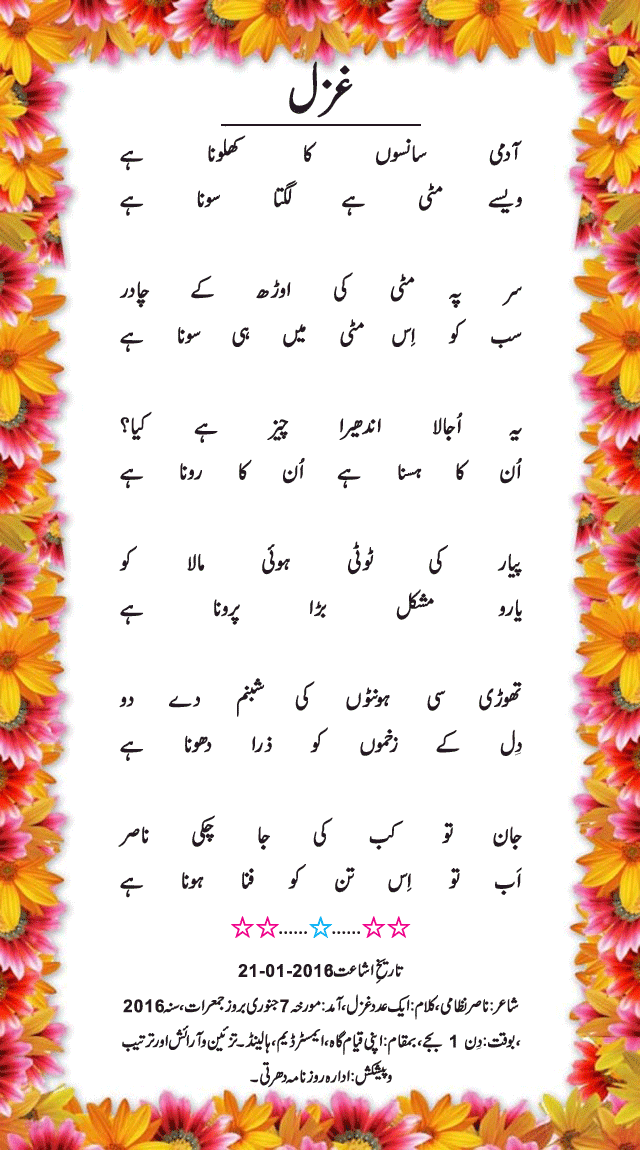 غزل
آدمی سانسوں کا کھلونا ہے
ویسے مٹی ہے لگتا سونا ہے
سر پہ مٹی کی اوڑھ کے چادر
سب کو اِس مٹی میں ہی سونا ہے
یہ اُجالا اندھیرا چیز ہے کیا؟
اُن کا ہسنا ہے اُن کا رونا ہے
پیار کی ٹوٹی ہوئی مالا کو
یارو مشکل بڑا پرونا ہے
تھوڑی سی ہونٹوں کی شبنم دے دو
دِل کے زخموں کو ذرا دھونا ہے
جان تو کب کی جا چکی ناصر
اَب تو اِس تن کو فنا ہونا ہے
☆☆......☆......☆☆
تاریخِ اشاعت 21-01-2016
شاعر: ناصر نظامی، کلام: ایک عدد غزل، آمد: مورخہ 7 جنوری بروز جمعرات، سنہ 2016
، بوقت: دِن 1 بجے، بمقام: اپنی قیام گاہ، ایمسٹرڈیم، ہالینڈ۔ تزئین و آرائش اور ترتیب
و پیشکش: ادارہ روزنامہ دھرتی۔